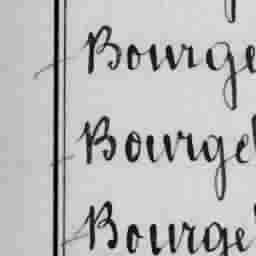 Bourge
Bourge
Bourge